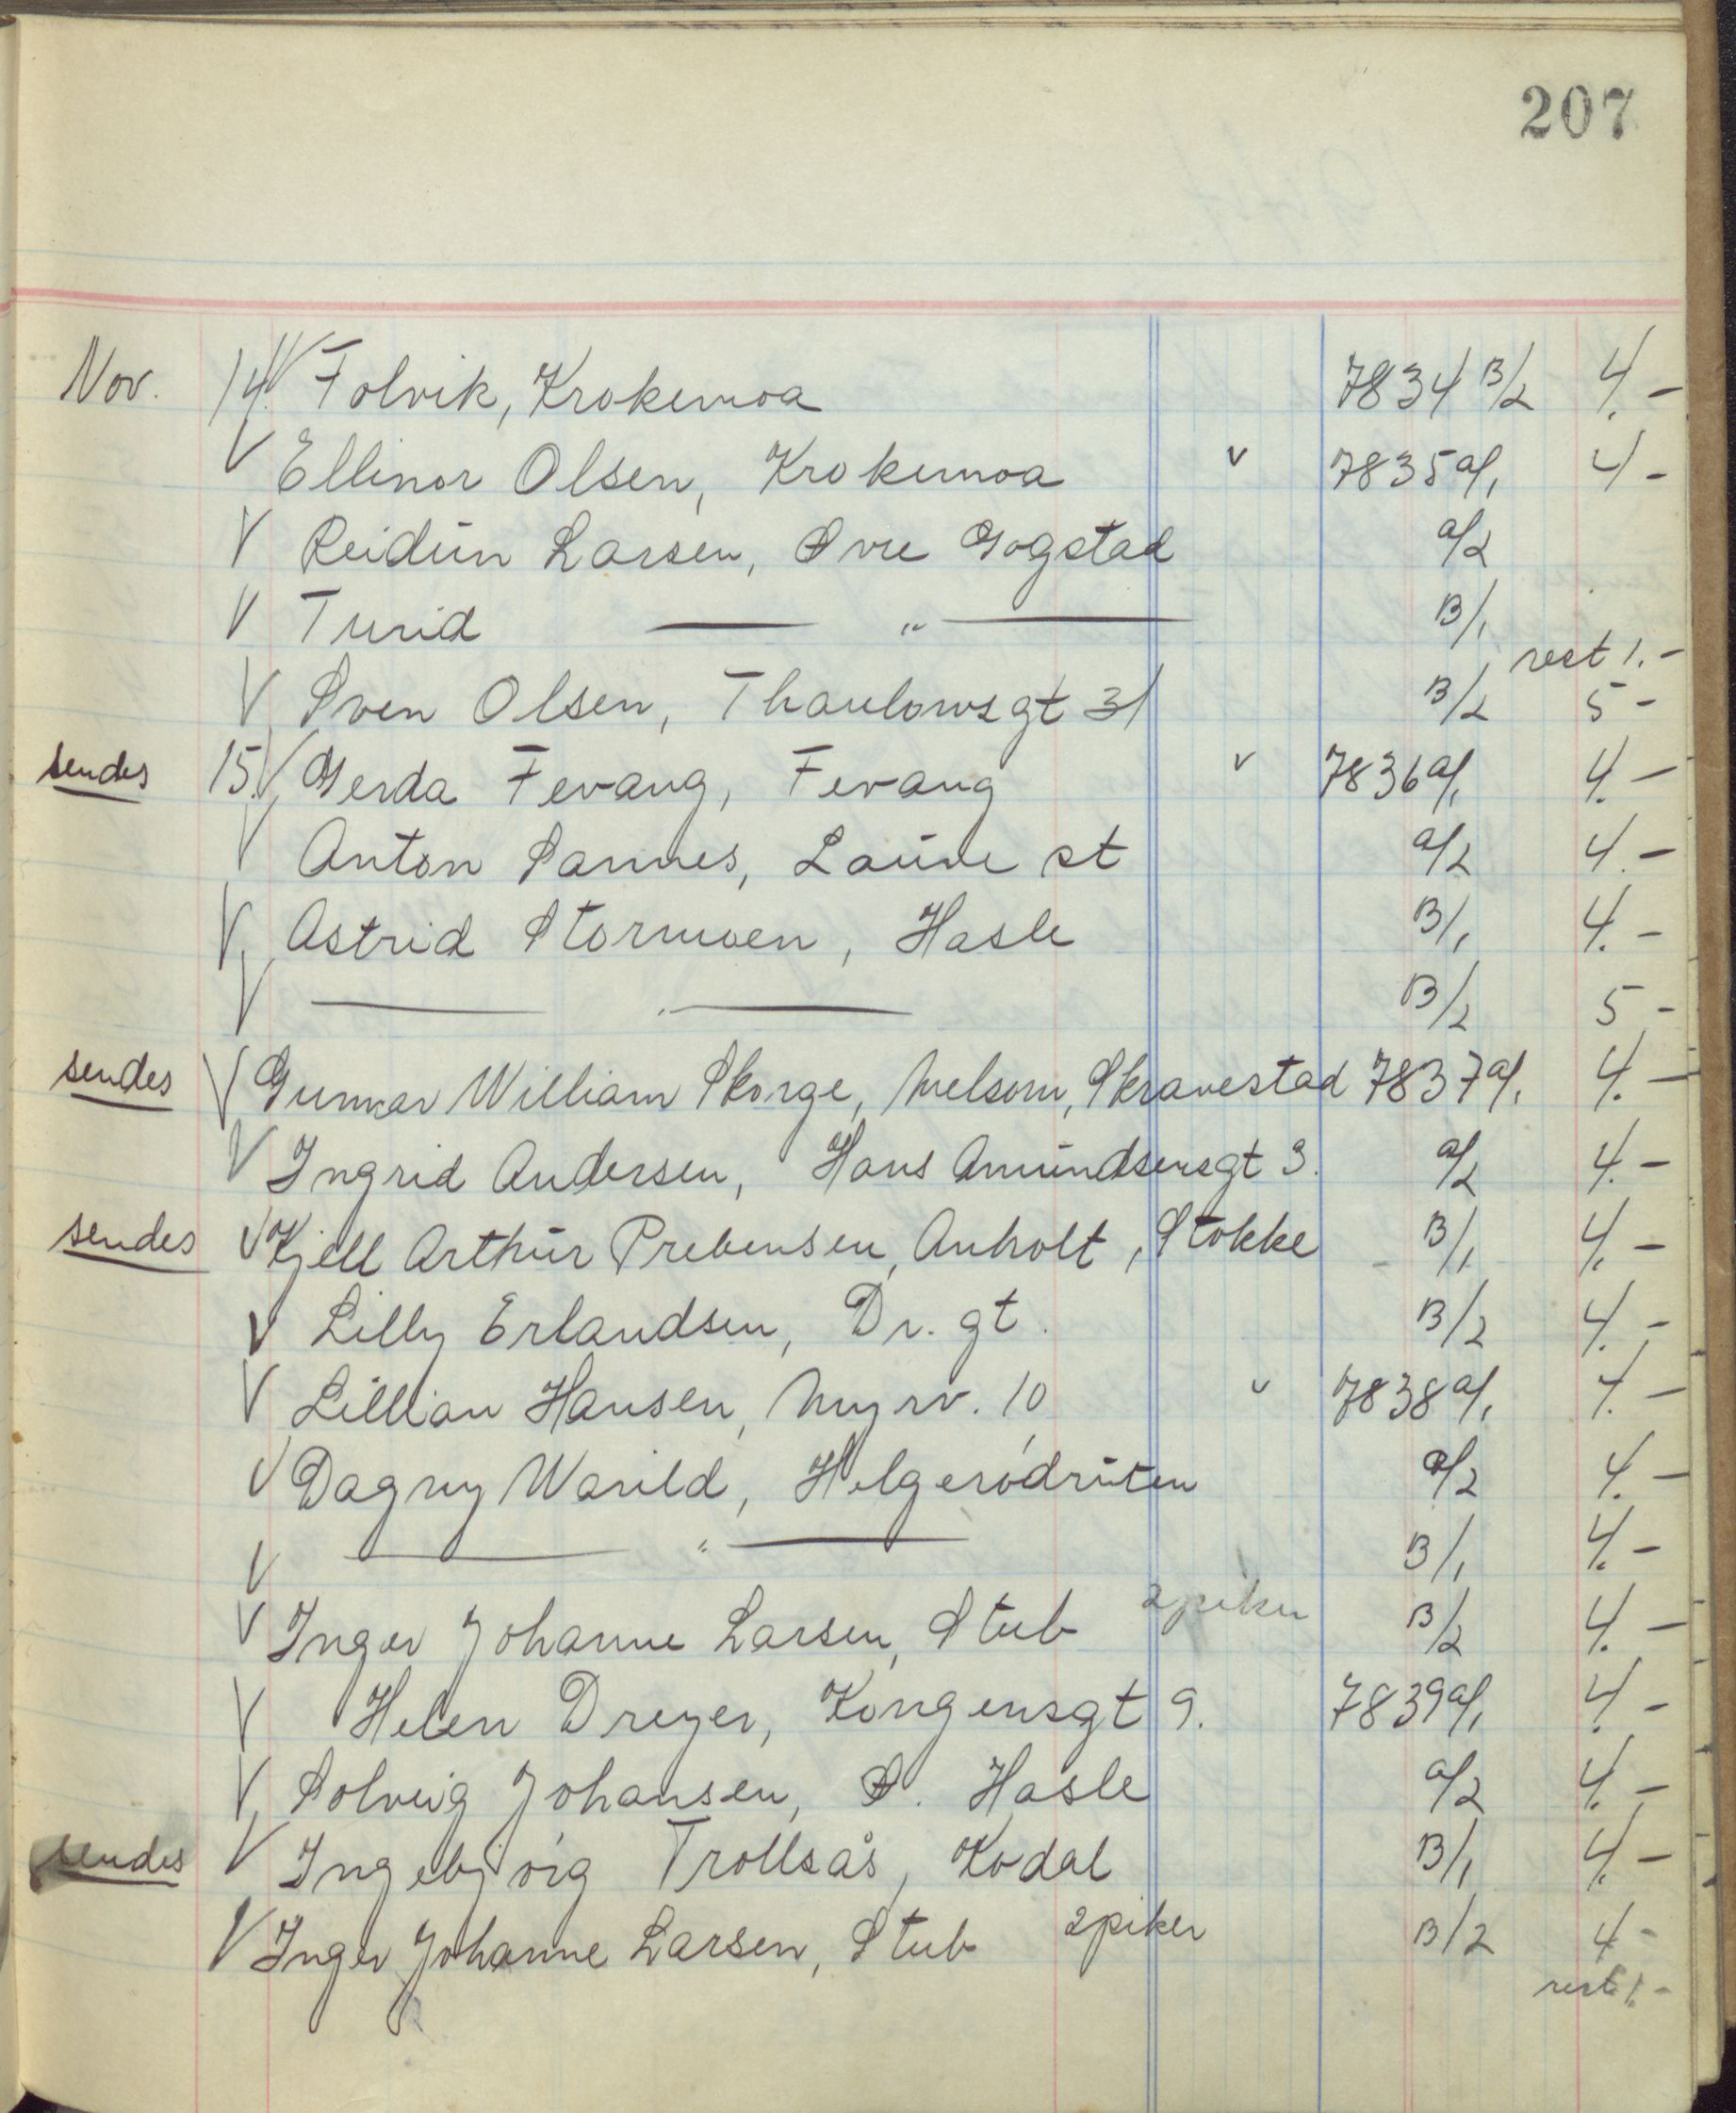 207
Nov. 14. V Folvik, Krokemoa 7834 B/2 4.-
V Ellinor Olsen, Krokemoa v 7835 a/1 4-
V Reidun Larsen, Øvre Gogstad a/2
V Turid — " — B/1
rest 1.-
V Sven Olsen, Thaulowsgt 31 B/2 5-
sendes 15. V Gerda Fevang, Fevang v 7836 a/1 4.-
V Anton Sannes, Lauve st a/2 4.-
V Astrid Stormoen, Hasle B/1 4.-
V — " — B/2 5-
sendes V Gunnar William Skorge, Melsom, Skravestad 7837 a/1 4.-
V Ingrid Andersen, Hans Amundsensgt 3. a/2 4.-
sendes V Kjell Arthur Prebensen, Anholt, Stokke B/1 4.-
V Lilly Erlandsen, Dr. gt. B/2 4.-
V Lillian Hansen, Myrv. 10 v 7838 a/1 4.-
V Dagny Warild, Helgerødruten a/2 4.-
V — " — B/1 4.-
V Inger Johanne Larsen, Stub 2 piker B/2 4.-
V Helen Dreyer, Kongensgt 9. 7839 a/1 4.-
V Solveig Johansen, Ø. Hasle a/2 4.-
sendes V Ingebjórg Trollsås, Kodal B/1 4.-
V Inger Johanne Larsen, Stub 2 piker B/2 4-
rest 1.-